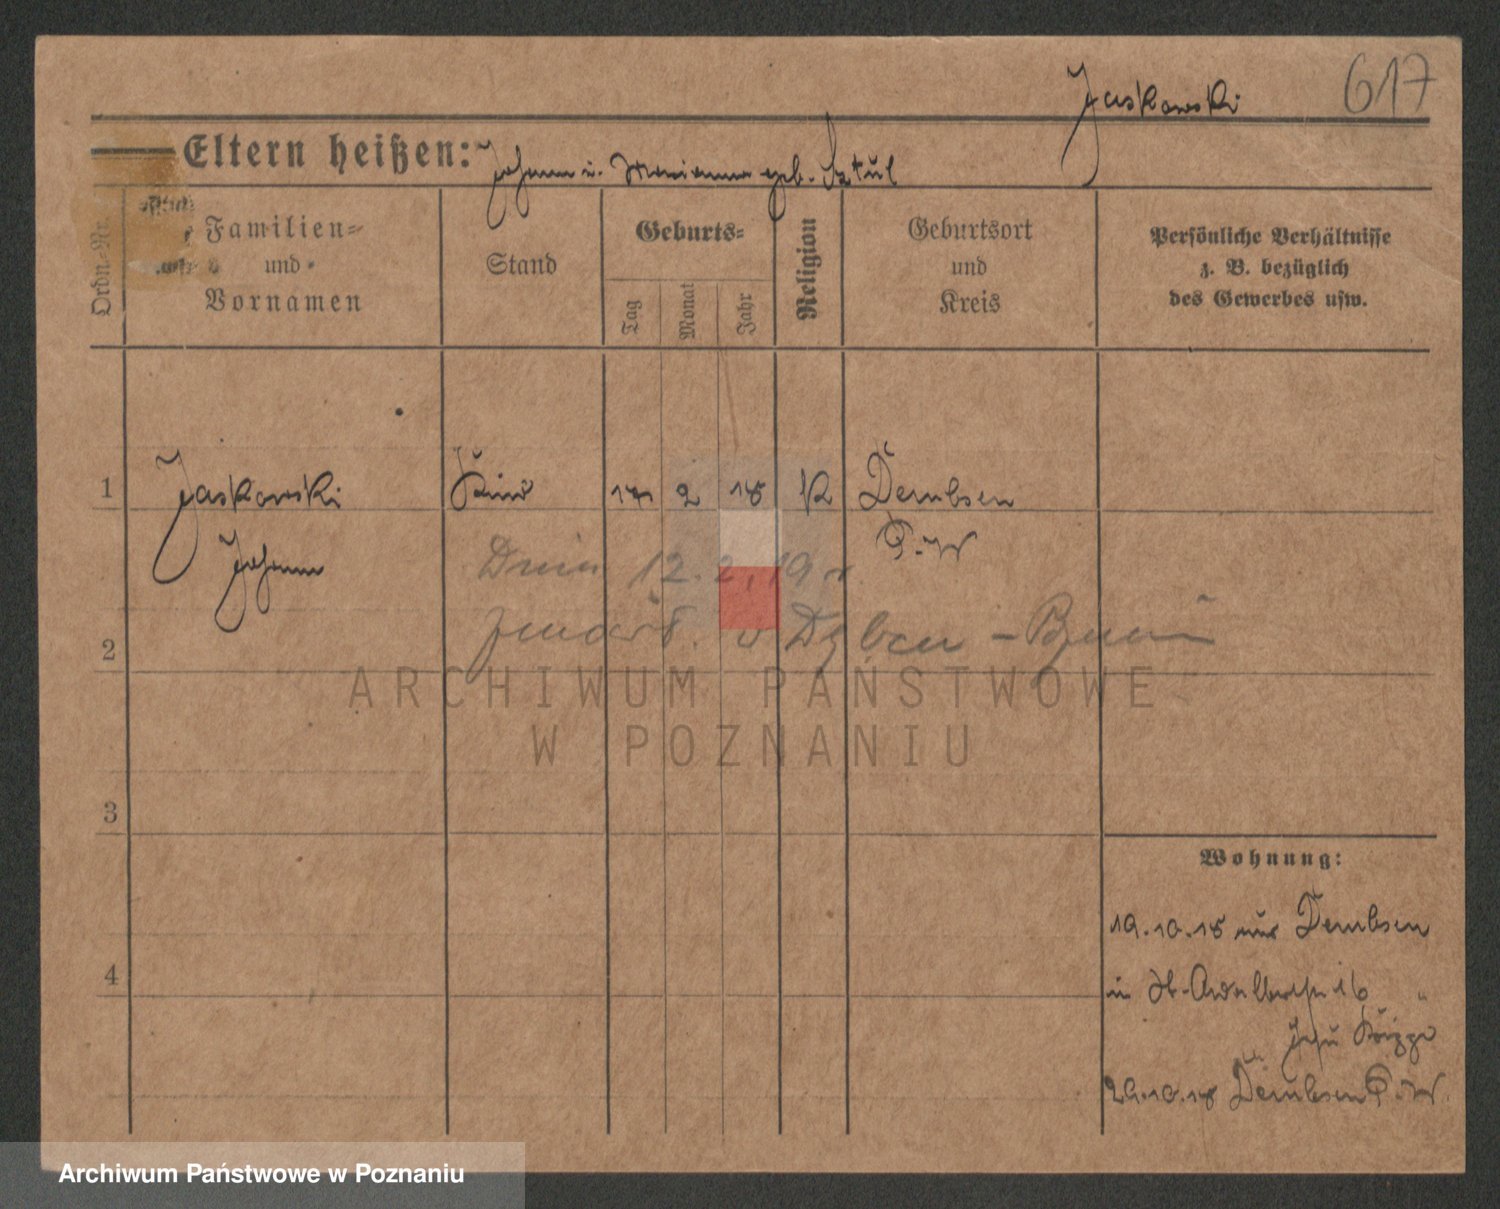 617
Jaskowski
Eltern heißen: Johann u. Marianna geb. Sztul
Ordn.-Nr.
Familien-
und
Vornamen
Stand
Geburts-
Tag
Monat
Jahr
Religion
Geburtsort
und
Kreis
Persönliche Verhältnisse
z. B. bezüglich
des Gewerbes usw.
1 Jaskowski Kind 17 2 18 K Dembsen
Johann P.-W
Dnia 12.2.19 r.
zmarł. w Dębcu -
2
ARCHIWUM PAŃSTWOWE
W POZNANIU
3
Wohnung:
19.10.18 aus Dembsen
4
in St. Adalbertstr 16
Jesu Krippe
29.10.18 Dembsen P.-W.
Archiwum Państwowe w Poznaniu